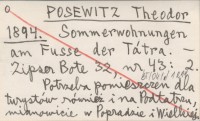 POSEWITZ Theodor
1894. Sommerwohnungen
am Fusse der Tátra. -
Zipser Bote 32, nr 43: 2.
Potrzeba pomieszczeń dla
turystów również i na Podtatrzu,
mianowicie w Popradzie i Wielkiej.